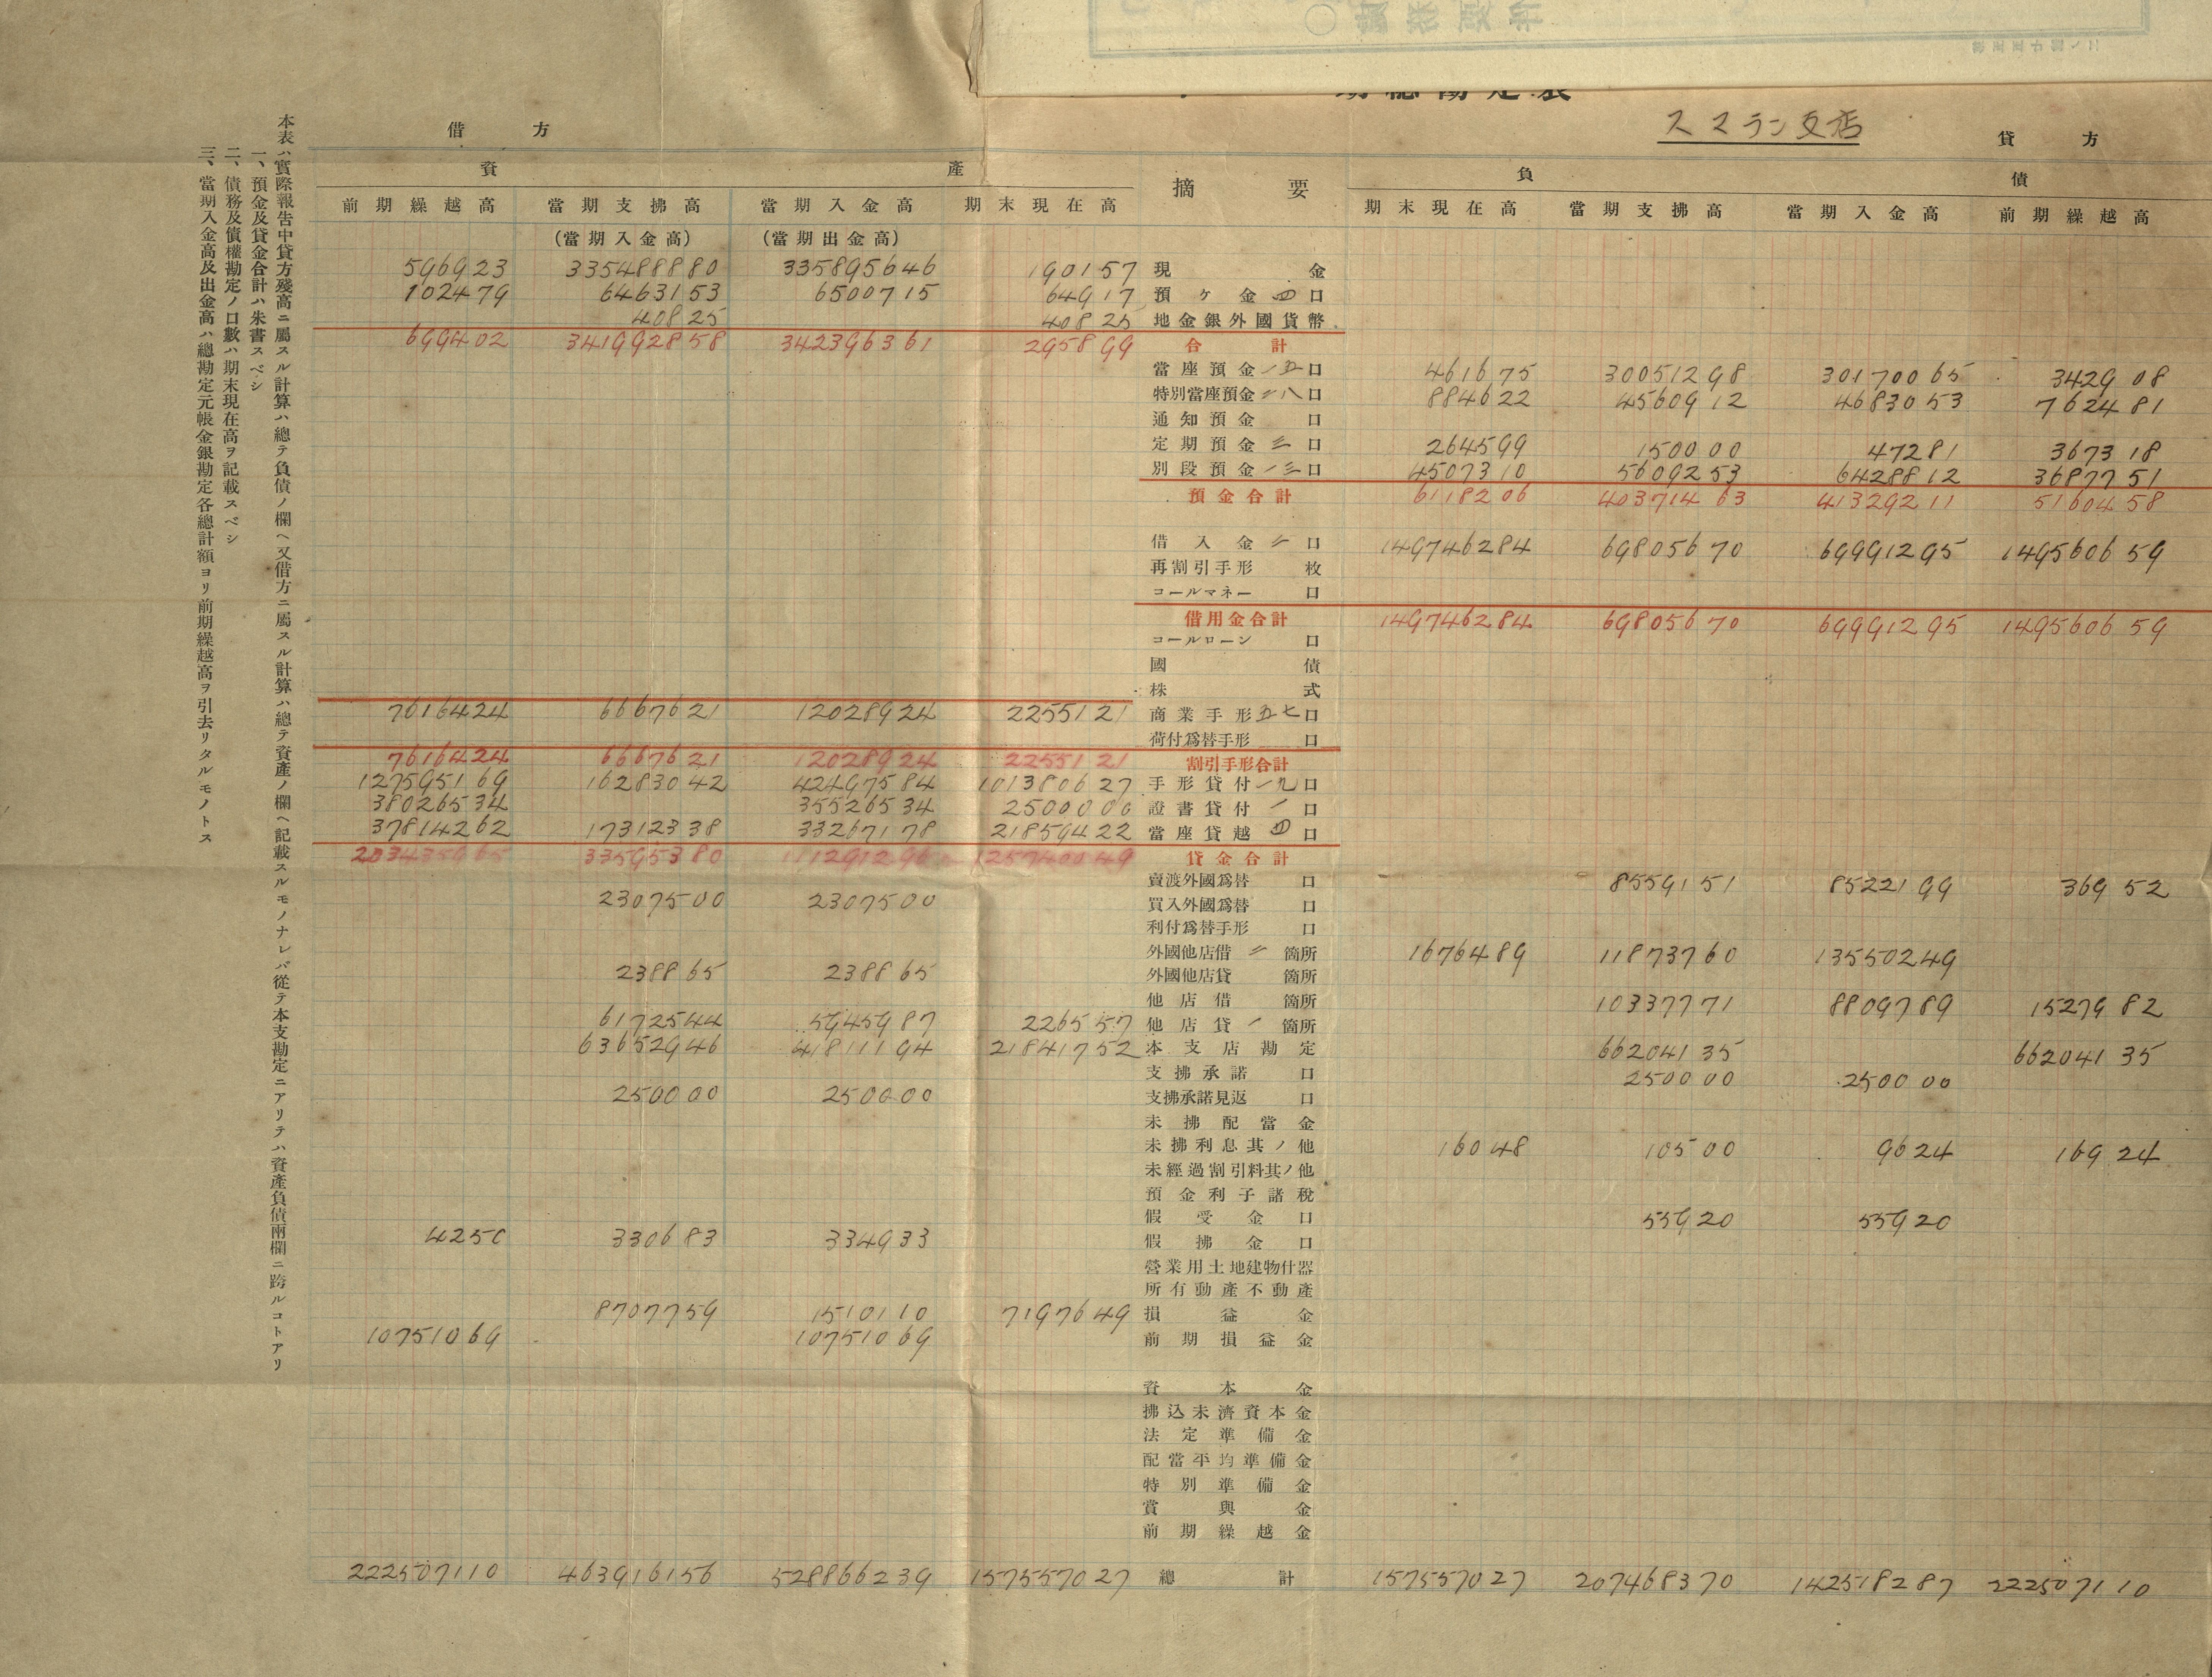 スマラン支店
借方
貸方
資產
摘要
負債
前期繰越高 當期支拂高 當期入金高 期末現在高
期末現在高 當期支拂高 當期入金高 前期繰越高
(當期入金高) (當期出金高)
596923 33548880 335895646 190157 現金
102479 6463153 6500715 64917 預ケ金四口
40825 40825 地金銀外國貨幣
699402 341992858 342396361 295899 合計
當座預金一五口 461675 30051298 30170065 342908
特別當座預金二八口 884622 4560912 4683053 762481
通知預金口
定期預金三口 264599 150000 47281 367318
別段預金一三口 4507310 5609253 6428812 3687751
預金合計 6118206 40371463 41329211 5160458
借入金二口 149746284 69805670 69991295 149560659
再割引手形枚
コールマネー口
借用金合計 149746284 69805670 69991295 149560659
コールローン口
國債
株式
7616424 6667621 12028924 2255121 商業手形五七口
荷付爲替手形口
7616424 6667621 12028924 2255121 割引手形合計
127595169 16283042 42497584 101380627 手形貸付一九口
38026534 35526534 2500000 證書貸付一口
37814262 17312338 33267178 21859422 當座貸越四口
203435965 33595380 111291296 125740049 貸金合計
賣渡外國爲替口 8559151 8522199 36952
2307500 2307500 買入外國爲替口
利付爲替手形口
外國他店借二箇所 1676489 11873760 13550249
238865 238865 外國他店貸箇所
他店借箇所 10337771 8809789 1527982
6172544 5945987 226557 他店貸一箇所
63652946 41811194 21841752 本支店勘定 66204135 66204135
支拂承諾口 250000 250000
250000 250000 支拂承諾見返口
未拂配當金
未拂利息其ノ他 16048 10500 9624 16924
未經過割引料其ノ他
預金利子諸稅
假受金口 55920 55920
4250 330683 334933 假拂金口
營業用土地建物什器
所有動產不動產
8707759 1510110 7197649 損益金
10751069 10751069 前期損益金
資本金
拂込未濟資本金
法定準備金
配當平均準備金
特別準備金
賞與金
前期繰越金
222507110 463916156 528866239 157557027 總計 157557027 207468370 142518287 222507110
本表ハ實際報告中貸方殘高ニ屬スル計算ハ總テ負債ノ欄ヘ又借方ニ屬スル計算ハ總テ資產ノ欄ヘ記載スルモノナレバ從テ本支勘定ニアリテハ資產負債兩欄ニ跨ルコトアリ
一、預金及貸金合計ハ朱書スベシ
二、債務及債權勘定ノ口數ハ期末現在高ヲ記載スベシ
三、當期入金高及出金高ハ總勘定元帳金銀勘定各總計額ヨリ前期繰越高ヲ引去リタルモノトス